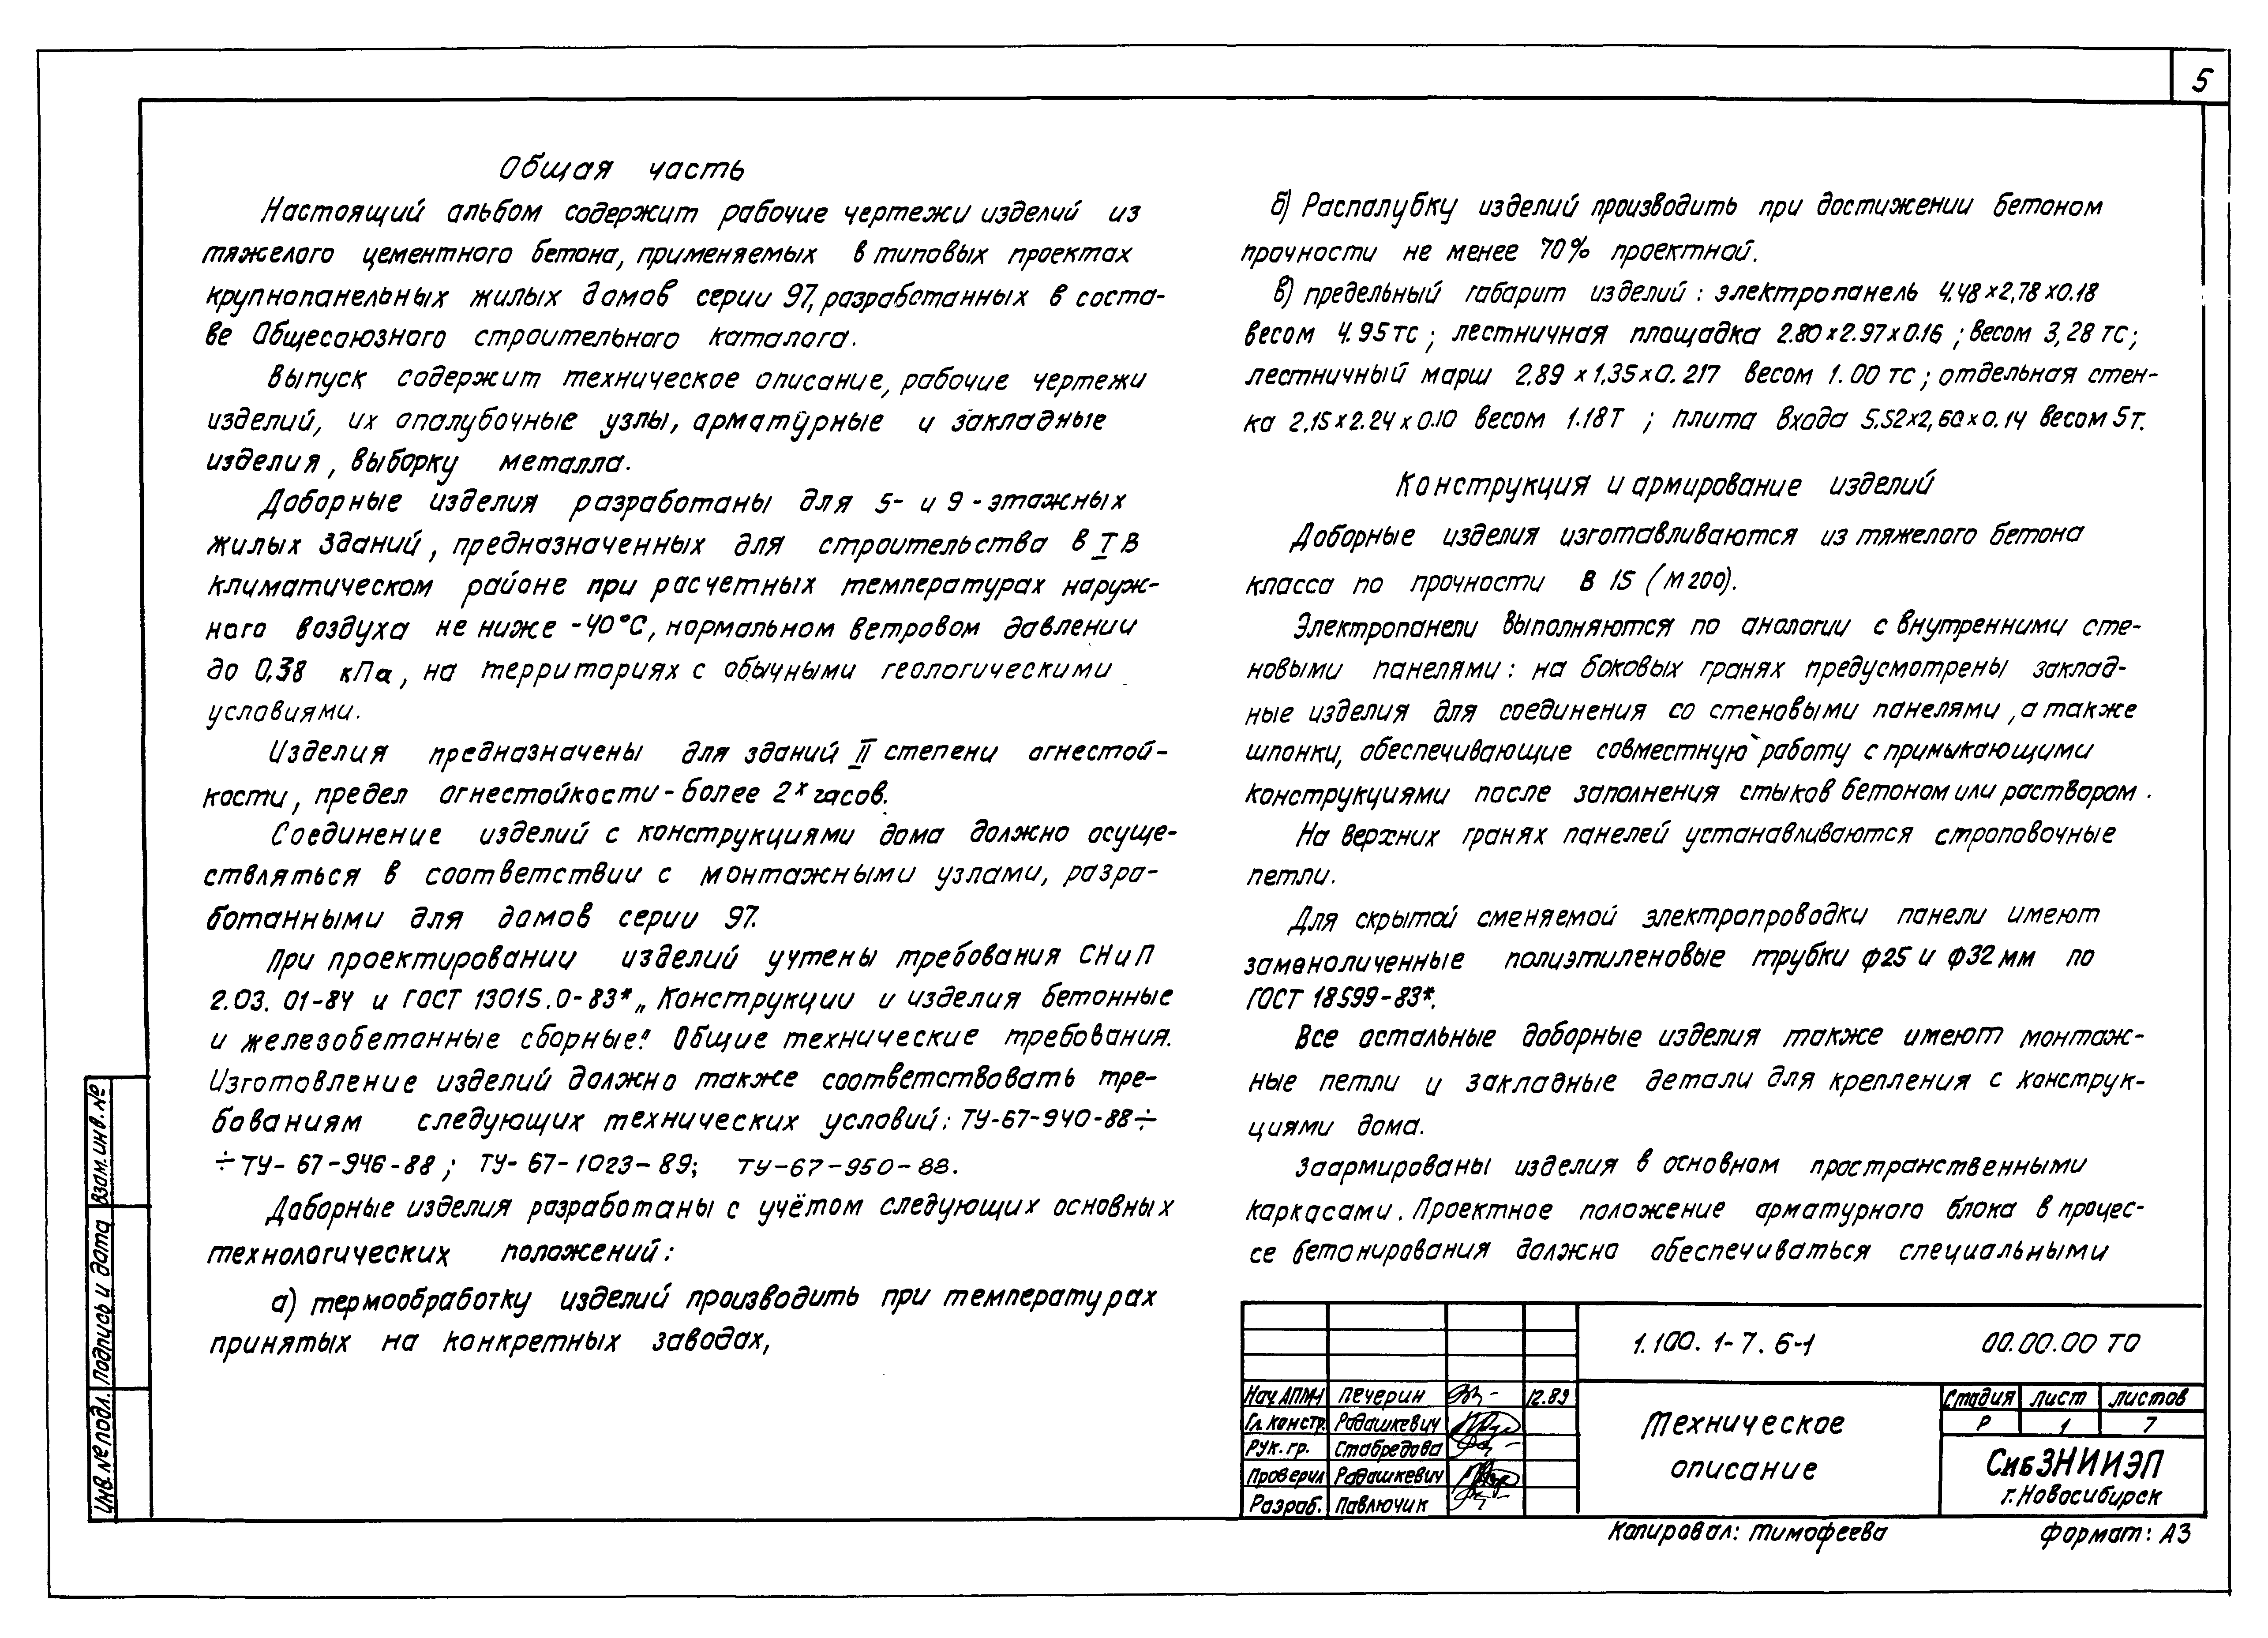 5
Общая часть
Настоящий альбом содержит рабочие чертежи изделий из
тяжелого цементного бетона, применяемых в типовых проектах
крупнопанельных жилых домов серии 97, разработанных в соста-
ве Общесоюзного строительного каталога.
Выпуск содержит техническое описание, рабочие чертежи
изделий, их опалубочные узлы, арматурные и закладные
изделия, выборку металла.
Доборные изделия разработаны для 5- и 9-этажных
жилых зданий, предназначенных для строительства в I В
климатическом районе при расчетных температурах наруж-
ного воздуха не ниже -40°С, нормальном ветровом давлении
до 0,38 кПа, на территориях с обычными геологическими
условиями.
Изделия предназначены для зданий II степени огнестой-
кости, предел огнестойкости - более 2х часов.
Соединение изделий с конструкциями дома должно осуще-
ствляться в соответствии с монтажными узлами, разра-
ботанными для домов серии 97.
При проектировании изделий учтены требования СНиП
2.03.01-84 и ГОСТ 13015.0-83* „Конструкции и изделия бетонные
и железобетонные сборные". Общие технические требования.
Изготовление изделий должно также соответствовать тре-
бованиям следующих технических условий: ТУ-67-940-88÷
÷ТУ-67-946-88; ТУ-67-1023-89; ТУ-67-950-88.
Доборные изделия разработаны с учётом следующих основных
технологических положений:
а) термообработку изделий производить при температурах
принятых на конкретных заводах,
б) Распалубку изделий производить при достижении бетоном
прочности не менее 70% проектной.
в) предельный габарит изделий: электропанель 4.48×2,78×0.18
весом 4.95тс; лестничная площадка 2.80×2.97×0.16; весом 3,28 тс;
лестничный марш 2,89×1,35×0.217 весом 1.00 тс; отдельная стен-
ка 2.15×2.24×0.10 весом 1.18т; плита входа 5.52×2,60×0.14 весом 5т.
Конструкция и армирование изделий
Доборные изделия изготавливаются из тяжелого бетона
класса по прочности В 15 (М200).
Электропанели выполняются по аналогии с внутренними сте-
новыми панелями: на боковых гранях предусмотрены заклад-
ные изделия для соединения со стеновыми панелями, а также
шпонки, обеспечивающие совместную работу с примыкающими
конструкциями после заполнения стыков бетоном или раствором.
На верхних гранях панелей устанавливаются строповочные
петли.
Для скрытой сменяемой электропроводки панели имеют
замоноличенные полиэтиленовые трубки ф25 и ф32 мм по
ГОСТ 18599-83*.
Все остальные доборные изделия также имеют монтаж-
ные петли и закладные детали для крепления с конструк-
циями дома.
Заармированы изделия в основном пространственными
каркасами. Проектное положение арматурного блока в процес-
се бетонирования должно обеспечиваться специальными
1.100.1-7.6-1 00.00.00 ТО
Нач.АПМ-1 Печерин 12.89
Гл. констр. Радашкевич
Рук. гр. Стабредова
Проверил Радашкевич
Разраб. Павлючик
Техническое
описание
Стадия Лист Листов
Р 1 7
СибЗНИИЭП
г. Новосибирск
Копировал: Тимофеева Формат: А3
Взам. инв. №
Подпись и дата
Инв. № подл.